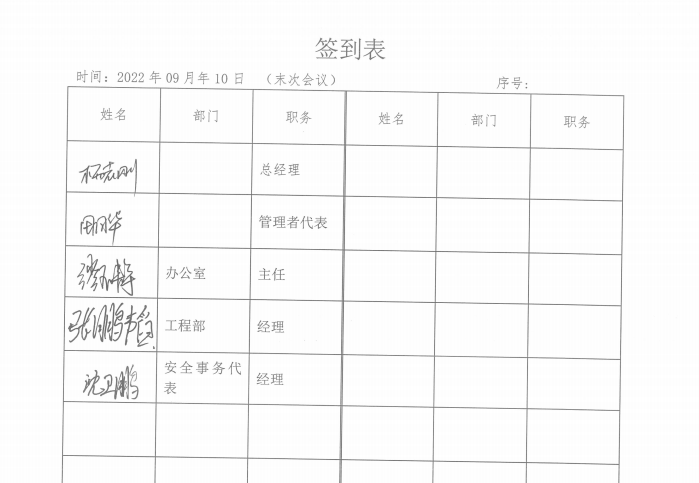 签到表
时间：2022 年 09 月年 10 日 （末次会议） 序号：
姓名 部门 职务 姓名 部门 职务
总经理
管理者代表
办公室 主任
工程部 经理
沈卫鹏 安全事务代 经理
表